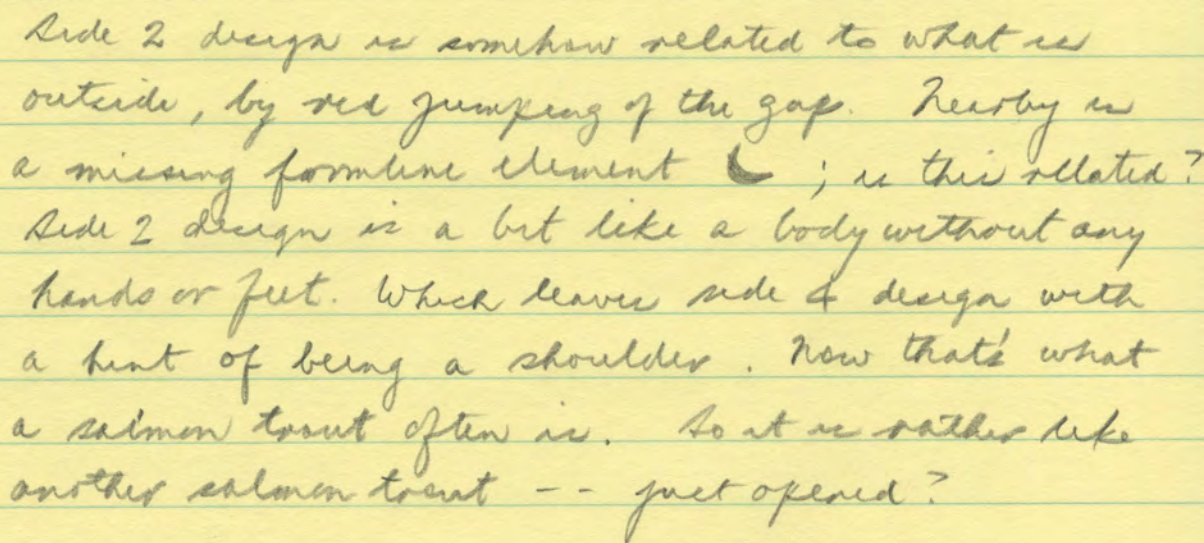 Side 2 design is somehow related to what is
outside, by red jumping of the gap. Nearby is
a missing formline element ; is this related?
Side 2 design is a bit like a body without any
hands or feet. Which leaves side 4 design with
a hint of being a shoulder. Now that's what
a salmon trout often is. So it is rather like
another salmon trout -- just opened?